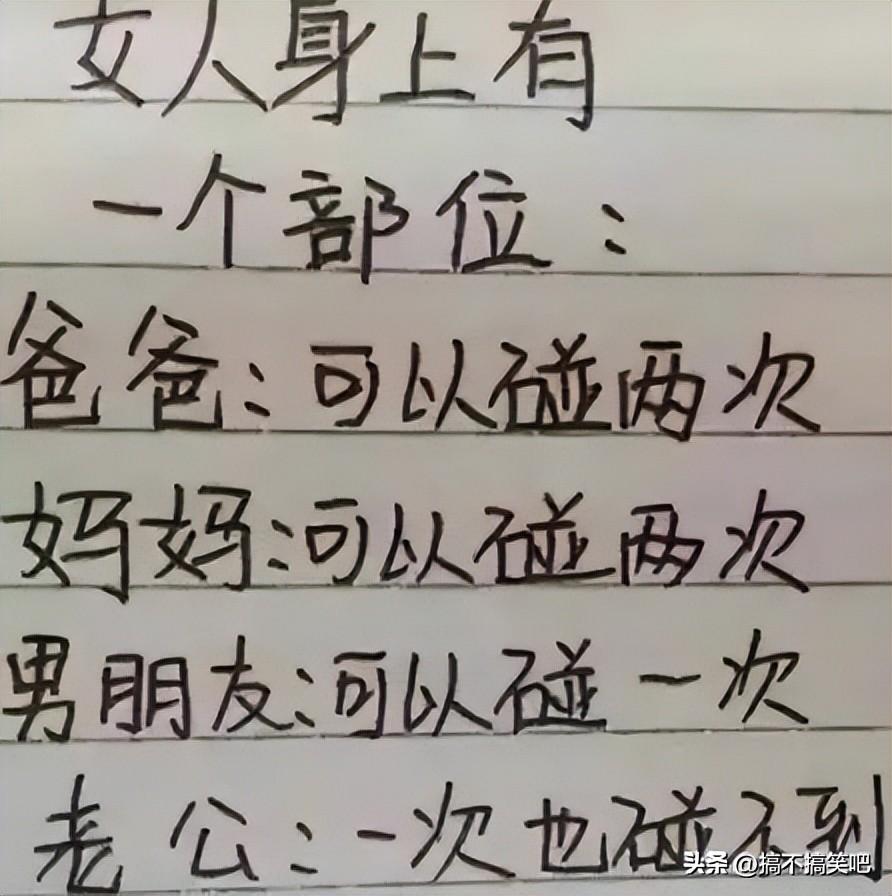 女人身上有
一个部位：
爸爸：可以碰两次
妈妈：可以碰两次
男朋友：可以碰一次
老公：一次也碰不到
头条 @搞不搞笑吧